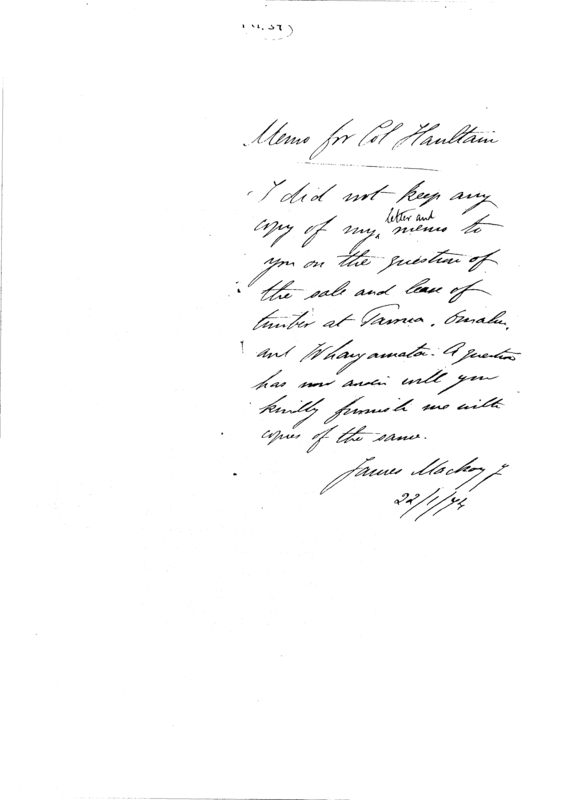 Memo for Col Haultain
I did not keep any
copy of my letter and memo to
you on the question of
the sale and lease of
timber at Tairua, Omahu,
and Whangamata. A question
has now arisen will you
kindly furnish me with
copies of the same.
James Mackay Jr
22/1/74